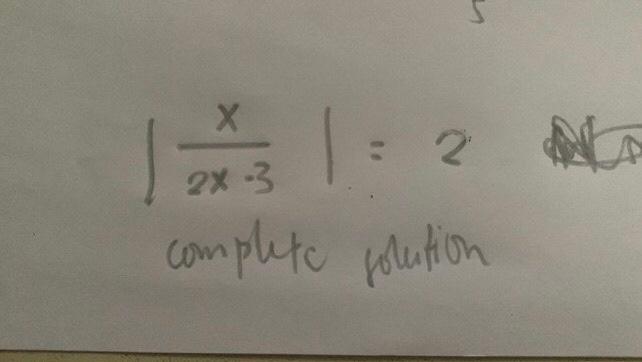 5
| x / 2x - 3 | = 2
complete solution